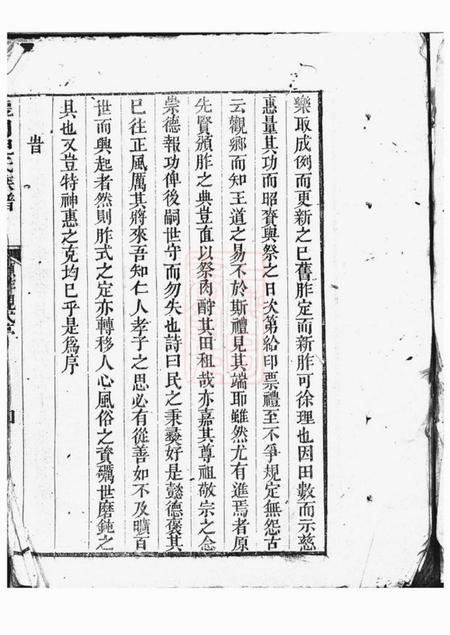 樂取成例而更新之已舊胙定而新胙可徐理也因田數而示慈
惠量其功而昭賚與祭之日次第給印票禮至不爭規定無怨古
云觀鄉而知王道之易不於斯禮見其端耶雖然尤有進焉者原
先賢頒胙之典豈直以祭肉酧其田租哉亦嘉其尊祖敬宗之念
崇德報功俾後嗣世守而勿失也詩曰民之秉彝好是懿德褒其
已往正風厲其將來吾知仁人孝子之思必有從善如不及曠百
世而興起者然則胙式之定亦轉移人心風俗之資礪世磨鈍之
具也又豈特神惠之克均已乎是爲序
旹
氏族譜